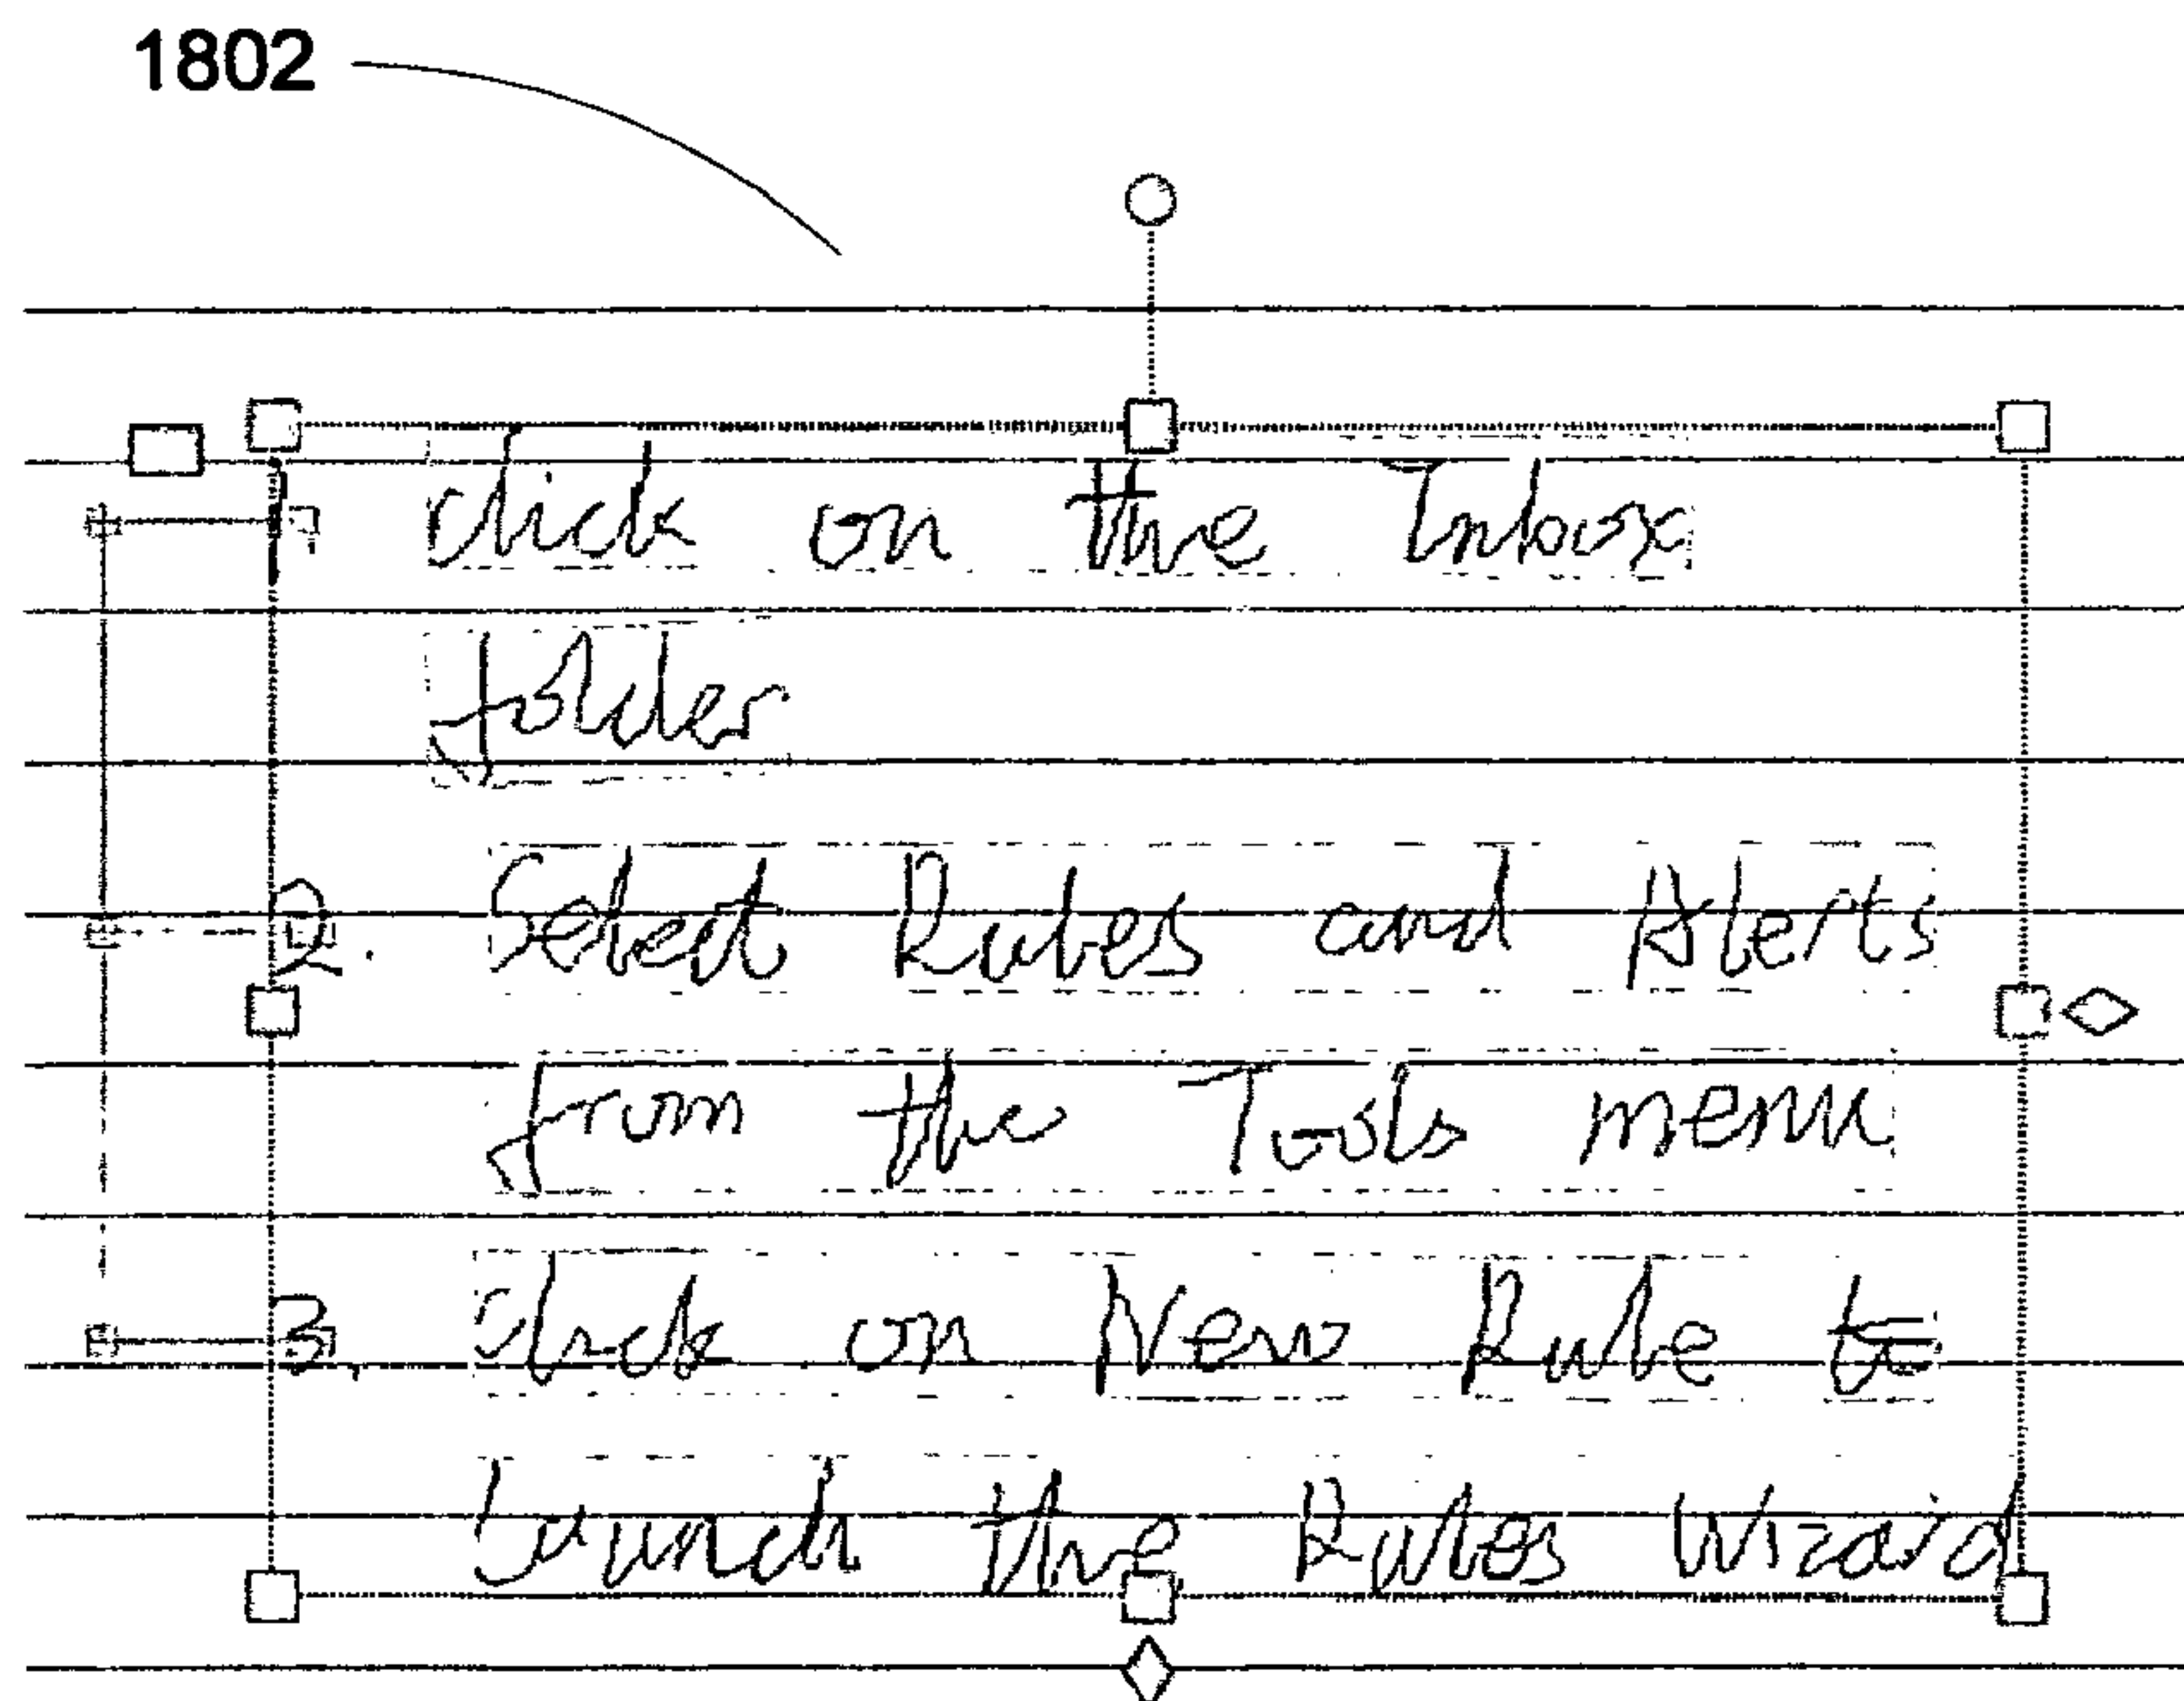 1802
1, click on the Inbox
folder
2. Select Rules and Alerts
from the Tools menu
3, Click on New Rule to
launch the Rules Wizard